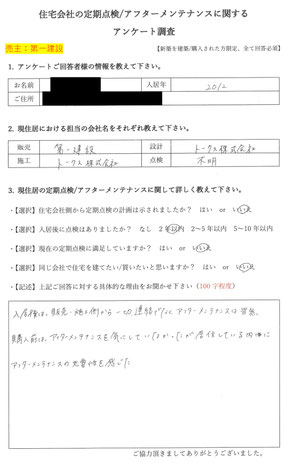 住宅会社の定期点検/アフターメンテナンスに関する
アンケート調査
売主：第一建設
【新築を建築/購入された方限定、全て回答必須】
1. アンケートご回答者様の情報を教えて下さい。
お名前 入居年 2012
ご住所
2. 現住居における担当の会社名をそれぞれ教えて下さい。
販売 第一建設 設計 トークス株式会社
施工 トークス株式会社 点検 不明
3. 現住居の定期点検/アフターメンテナンスに関して詳しく教えて下さい。
・【選択】住宅会社側から定期点検の計画は示されましたか？ はい or いいえ
・【選択】入居後に点検はありましたか？ なし 2年以内 2～5年以内 5～10年以内
・【選択】現在の定期点検に満足していますか？ はい or いいえ
・【選択】同じ会社で住宅を建てたい/買いたいと思いますか？ はい or いいえ
・【記述】上記ご回答に対する具体的な理由をお聞かせ下さい（100字程度）
入居後は、販売・施工側から一切連絡がなくアフターメンテナンスは皆無。
購入前は、アフターメンテナンスを気にしていなかったが居住している内に
アフターメンテナンスの重要性を感じた
ご協力頂きましてありがとうございました。